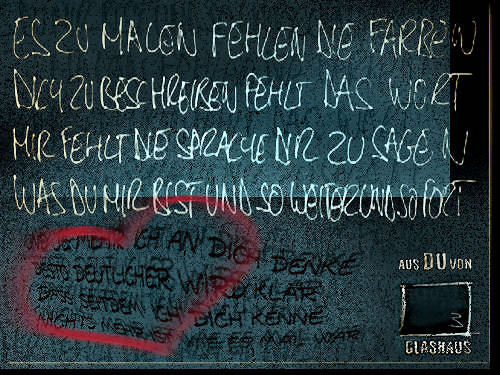 ES ZU MALEN FEHLEN DIE FARBEN
DICH ZU BESCHREIBEN FEHLT DAS WORT
MIR FEHLT DIE SPRACHE DIR ZU SAGEN
WAS DU MIR BIST UND SO WEITER UND SO FORT
JE MEHR ICH AN DICH DENKE
DESTO DEUTLICHER WIRD KLAR
DASS SEITDEM ICH DICH KENNE
NICHTS MEHR IST WIE ES MAL WAR
AUS DU VON
GLASHAUS